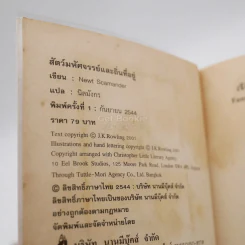 สัตว์มหัศจรรย์และถิ่นที่อยู่
เขียน : Newt Scamander
แปล : นิลมังกร
พิมพ์ครั้งที่ 1 : กันยายน 2544
ราคา 79 บาท
Text copyright © J.K.Rowling 2001
Illustrations and hand lettering copyright © J.K.Rowling
Copyright arranged with Christopher Little Literary Agency
10 Eel Brook Studios, 125 Moore Park Road, London
Through Tuttle-Mori Agency Co., Ltd. Bangkok
© ลิขสิทธิ์ภาษาไทย 2544 : บริษัท นานมีบุ๊คส์ จำกัด
ลิขสิทธิ์ภาษาไทยเป็นของบริษัท นานมีบุ๊คส์
อย่างถูกต้องตามกฎหมาย
จัดพิมพ์และจัดจำหน่ายโดย
บริษัท นานมีบุ๊คส์ จำกัด